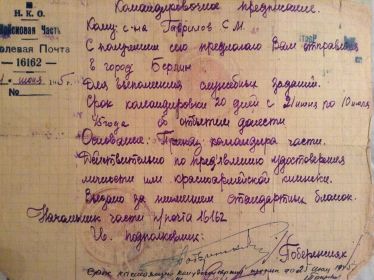 Командировочное предписание.
Н. К. О.
Войсковая Часть
Полевая Почта
— 16162 —
июня 1945 г.
№
Кому: с-на Гаврилов С М.
С получением сего предлагаю Вам отправиться
в город Берлин
Для выполнения служебных заданий.
Срок командировки 20 дней с 21 июня по 10 июля
45 года об отъезде донести
Основание: Приказ командира части.
Действительно по предъявлению удостоверения
личности или красноармейской книжки.
Выдано за неимением стандартных бланок.
Начальник части п/почта 16162
И. подполковник: